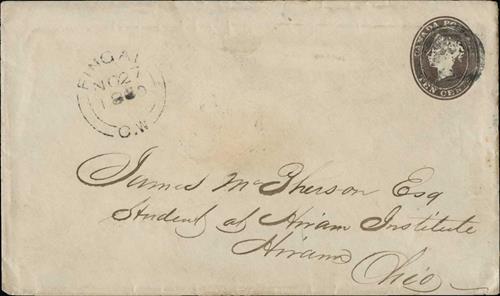 FINGAL
NO 27
1860
C.W
CANADA POSTAGE
TEN CENTS
James McPherson Esq
Student at Hiram Institute
Hiram
Ohio